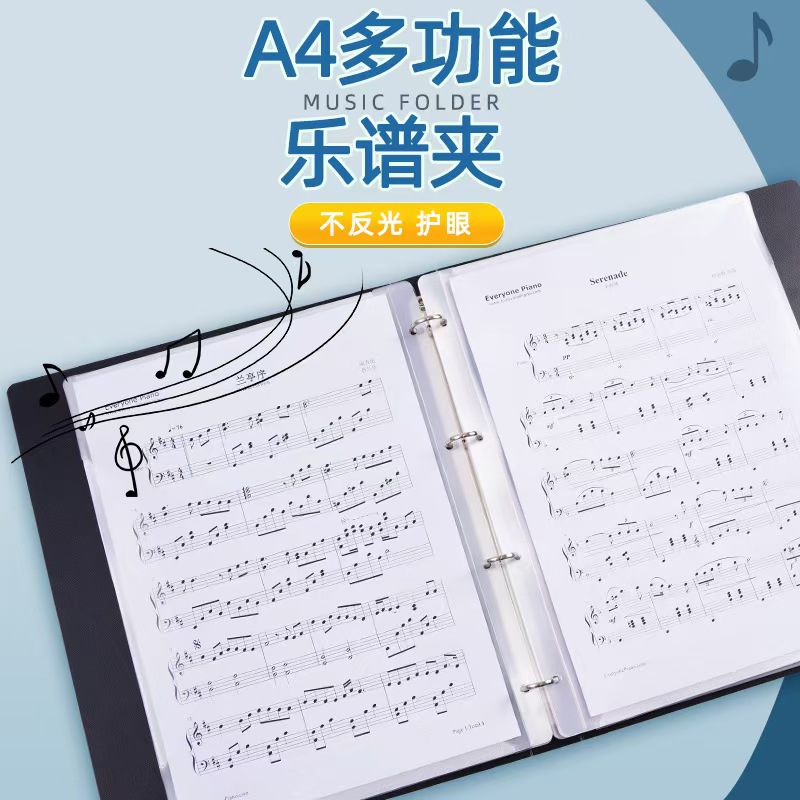 A4多功能
MUSIC FOLDER
乐谱夹
不反光 护眼
Everyone Piano
Serenade
小夜曲
Piano
pp
mf
兰亭序
Everyone Piano
Page 1 total 4
EveryonePiano.com